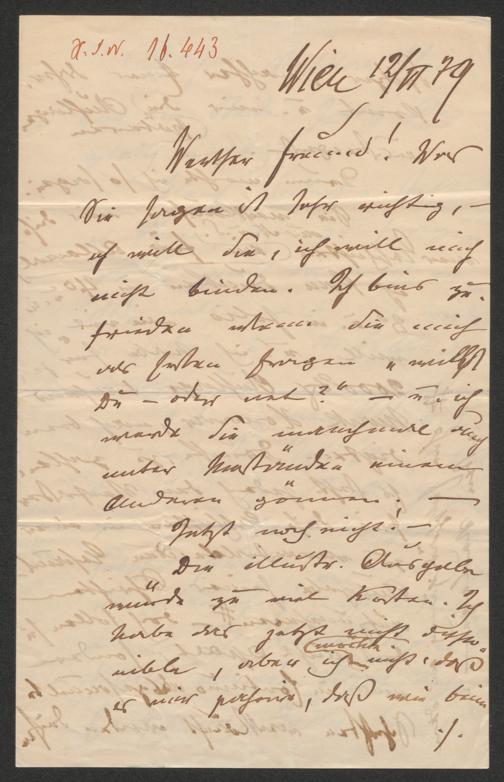 H.I.N. 16.443
Wien 12/VI 79
Werther Freund! Was
Sie sagen ist sehr richtig, –
ich will Sie, ich will mich
nicht binden. Ich bins zu-
frieden wenn Sie mich
als ersten fragen „willst
Du – oder net?“ – u. ich
werde Sie manchmal auch
unter Umständen einem
Anderen gönnen. –
Jetzt noch nicht! –
Die illustr. Ausgabe
würde zu viel kosten. Ich
habe das jetzt nicht dispo-
nible, aber ich möchte nicht, daß
es mir passire, daß wie beim
./.